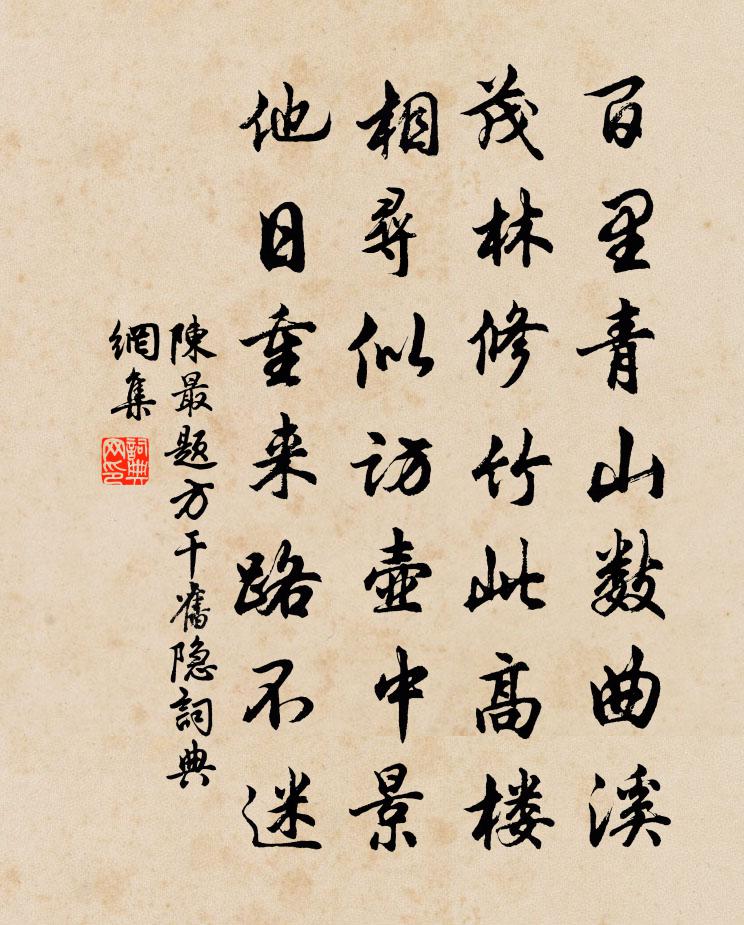 百里青山数曲溪
茂林修竹此高楼
相尋似访壶中景
他日重来路不迷
陳最题方干舊隐詞典
網集
詞典網印